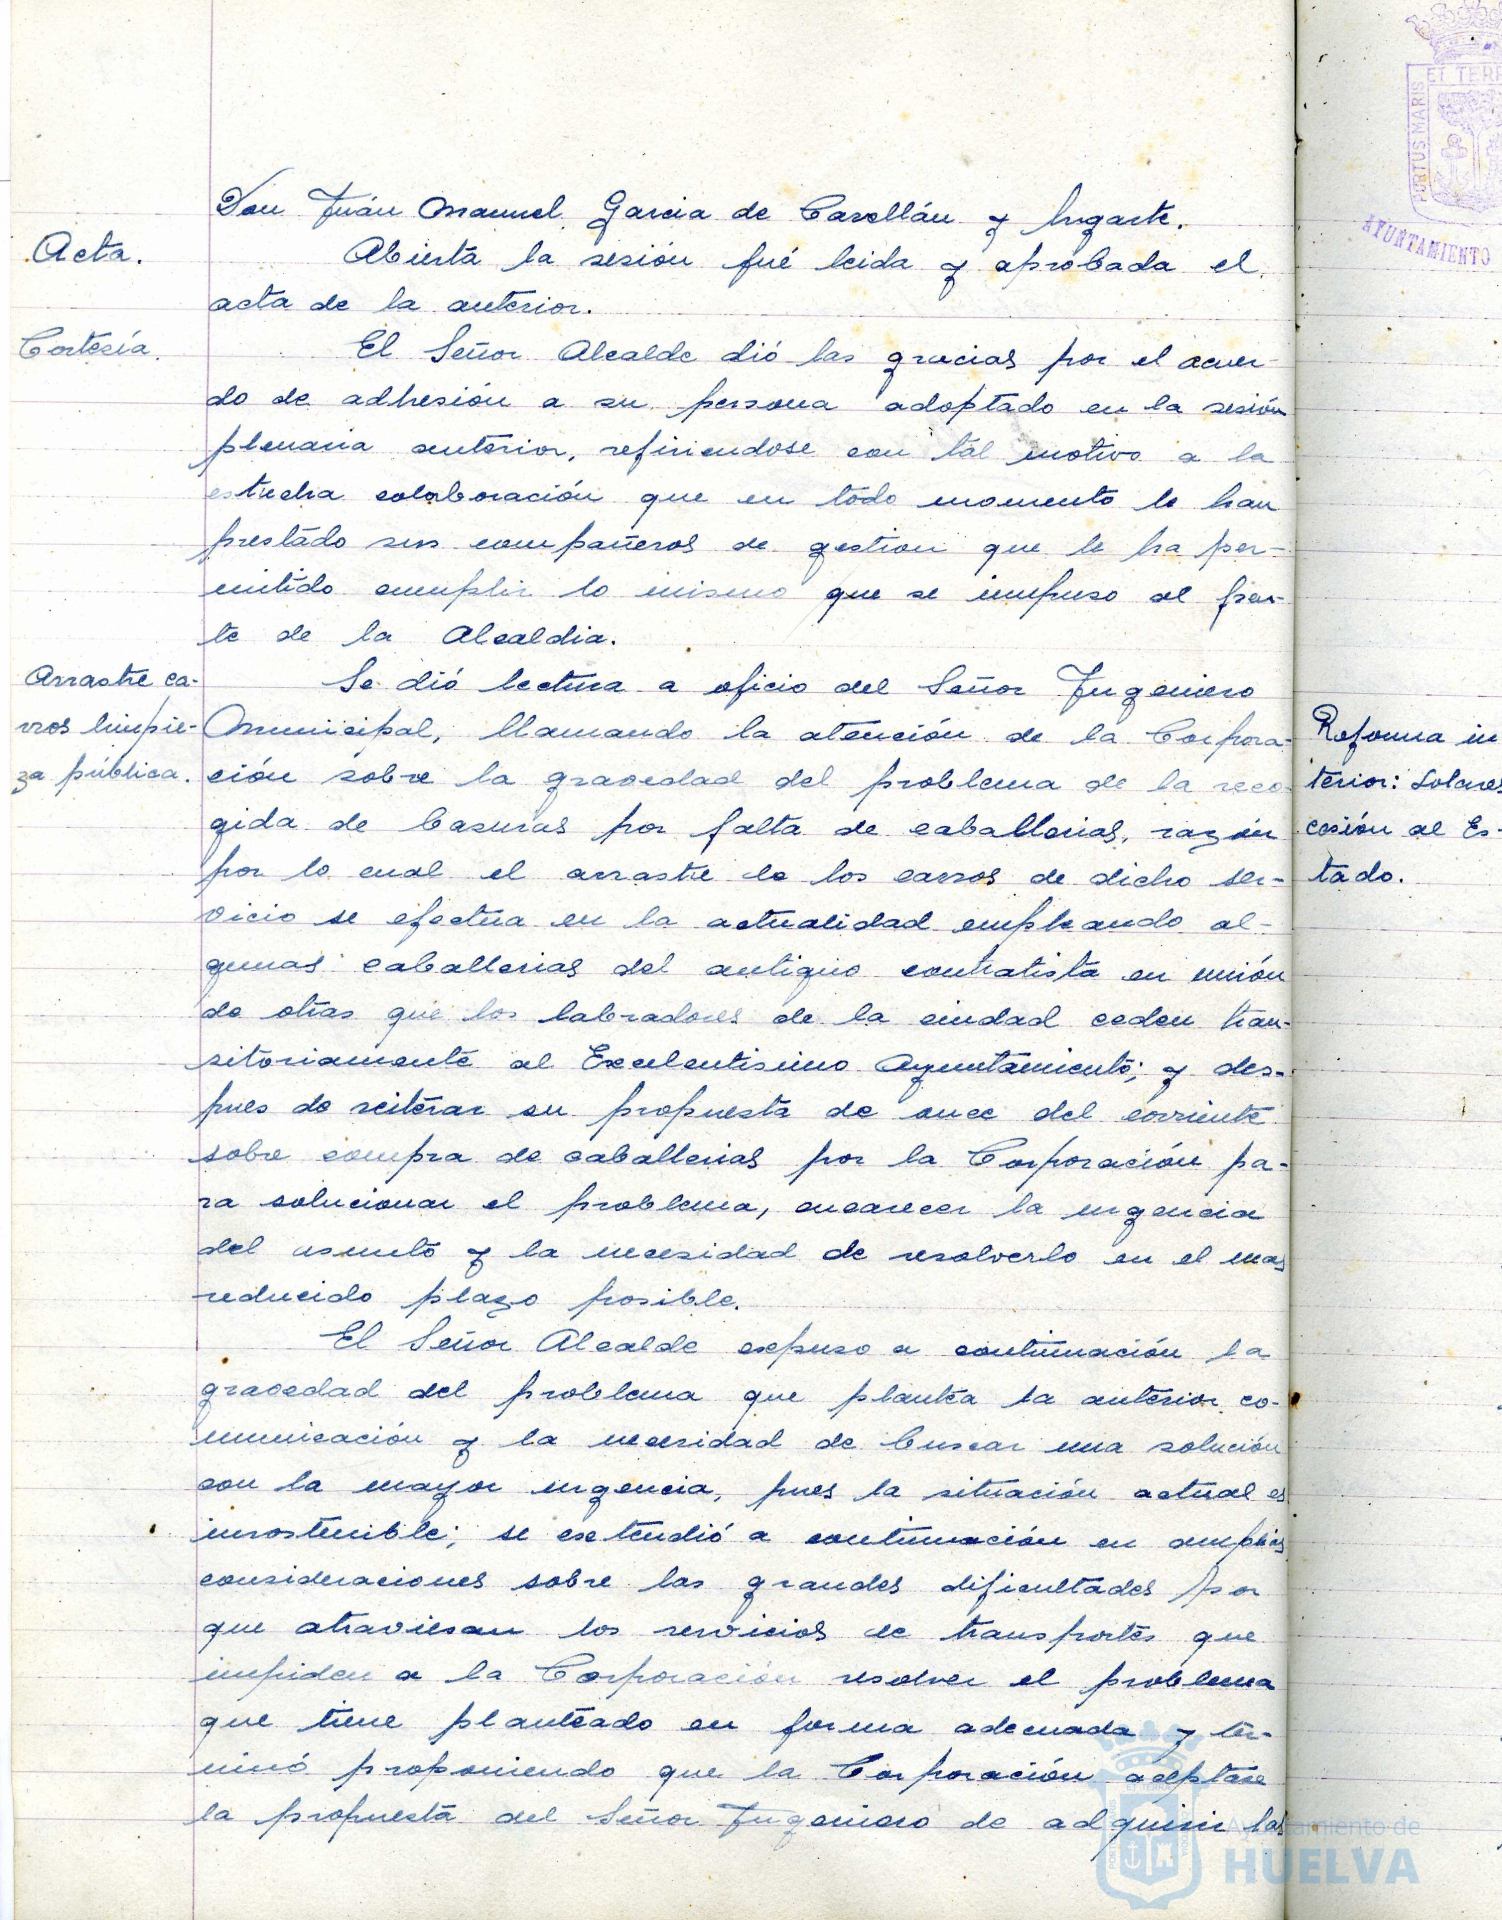 Don Juán Manuel García de Castellán y Ingarte.
Acta.
Abierta la sesión fué leida y aprobada el
acta de la anterior.
Cortesía.
El Señor Alcalde dió las gracias por el acuer-
do de adhesión a su persona adoptado en la sesión
plenaria anterior, refiriendose con tál motivo a la
estrecha colaboración que en todo momento le han
prestado sus compañeros de gestion que le ha per-
mitido cumplir lo mismo que se impuso al fren-
te de la Alcaldia.
Arrastre ca-
rros limpie-
za pública.
Se dió lectura a oficio del Señor Ingeniero
Municipal, llamando la atención de la Corpora-
ción sobre la gravedad del problema de la reco-
gida de basuras por falta de caballerias, razón
por lo cual el arrastre de los carros de dicho ser-
vicio se efectua en la actualidad empleando al-
gunas caballerias del antiguo contratista en unión
de otras que los labradores de la ciudad ceden tran-
sitoriamente al Excelentisimo Ayuntamiento; y des-
pues de reiterar su propuesta de once del corriente
sobre compra de caballerias por la Corporación pa-
ra solucionar el problema, encarecer la urgencia
del asunto y la necesidad de resolverlo en el mas
reducido plazo posible.
El Señor Alcalde expuso a continuación la
gravedad del problema que plantea la anterior co-
municación y la necesidad de buscar una solución
con la mayor urgencia, pues la situación actual es
insostenible; se extendió a continuación en amplias
consideraciones sobre las grandes dificultades por
que atraviesan los servicios de transportes que
impiden a la Corporación resolver el problema
que tiene planteado en forma adecuada y ter-
minó proponiendo que la Corporación aceptase
la propuesta del Señor Ingeniero de adquirir las
Reforma in
terior: Solares
cesión al Es-
tado.
ET TERR
PORTUS MARIS
AYUNTAMIENTO
Ayuntamiento de
HUELVA